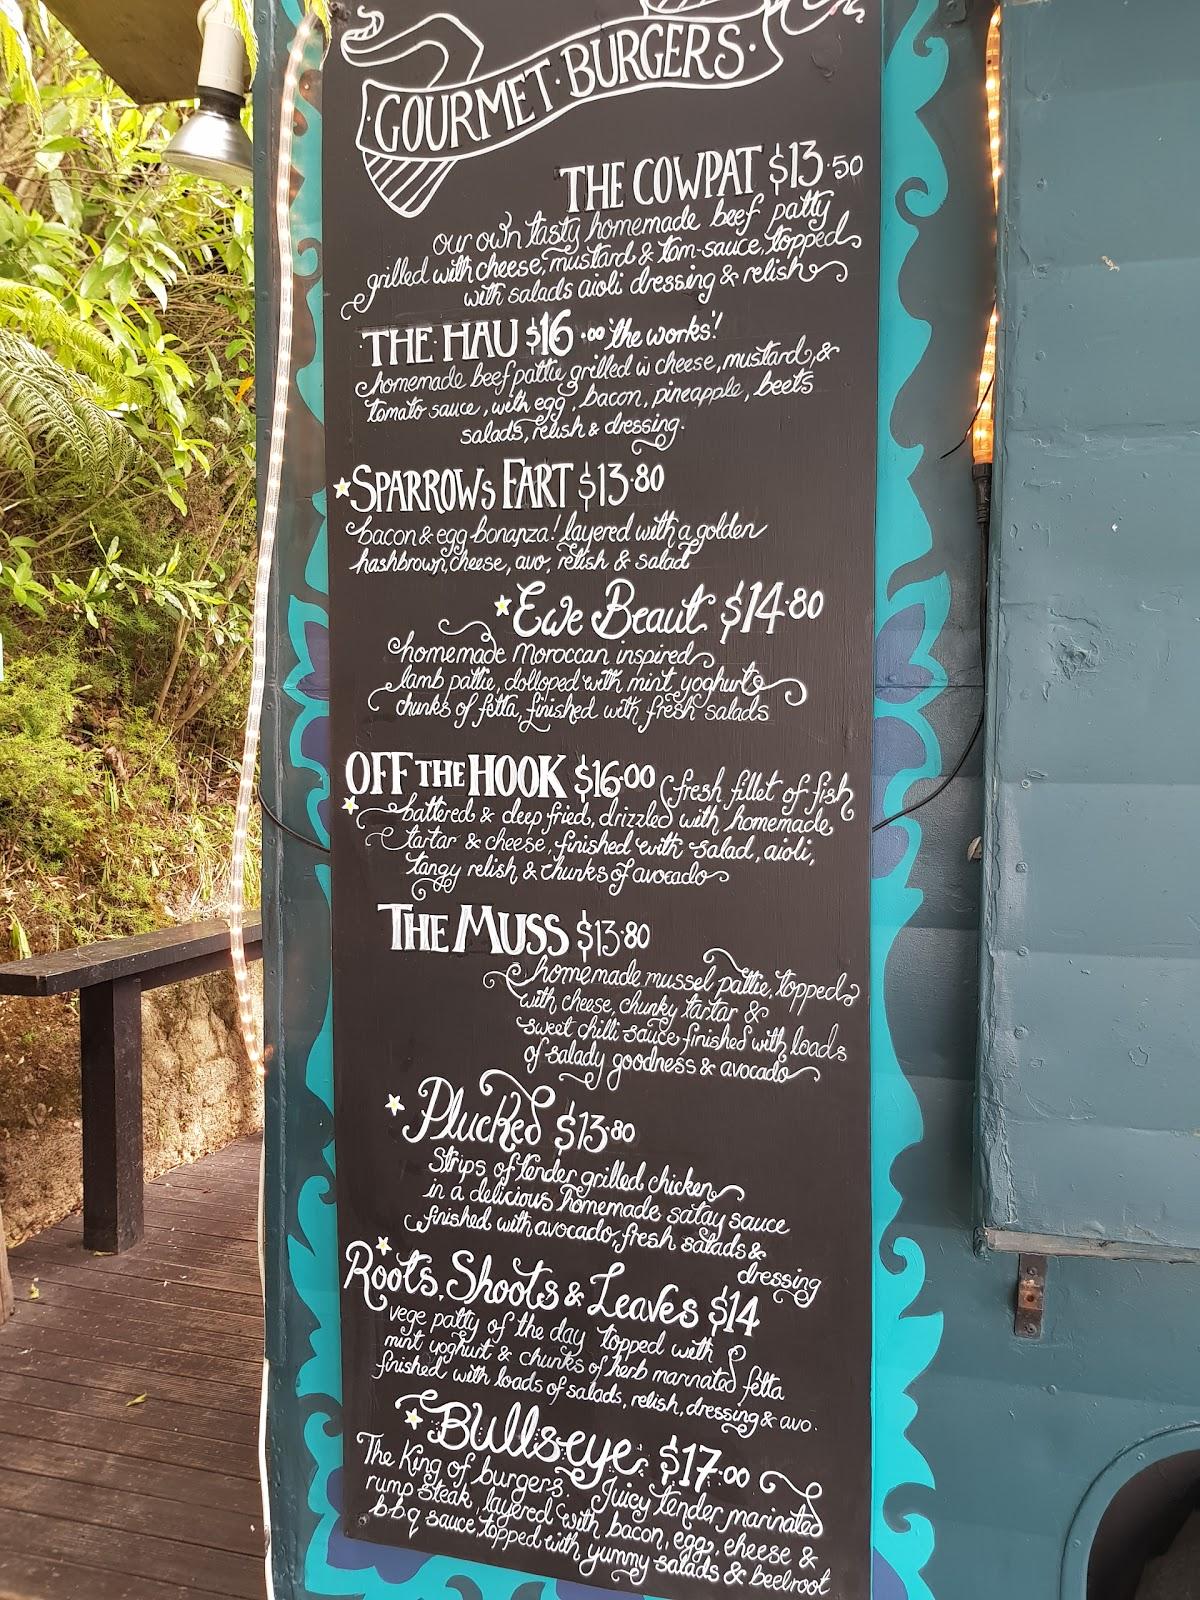 GOURMET · BURGERS ·
THE COWPAT $13.50
our own tasty homemade beef patty
grilled with cheese, mustard & tom-sauce, topped
with salads aioli dressing & relish
THE HAU $16.00 'the works'!
homemade beef pattie grilled w cheese, mustard, &
tomato sauce, with egg, bacon, pineapple, beets
salads, relish & dressing.
SPARROWS FART $13.80
bacon & egg bonanza! layered with a golden
hashbrown, cheese, avo, relish & salad
Ewe Beaut $14.80
homemade Moroccan inspired
lamb pattie, dolloped with mint yoghurt
chunks of fetta, finished with fresh salads
OFF THE HOOK $16.00 fresh fillet of fish
battered & deep fried, drizzled with homemade
tartar & cheese, finished with salad, aioli,
tangy relish & chunks of avocado
THE MUSS $13.80
homemade mussel pattie, topped
with cheese, chunky tartar &
sweet chilli sauce finished with loads
of salady goodness & avocado
Plucked $13.80
Strips of tender grilled chicken
in a delicious homemade satay sauce
finished with avocado, fresh salads &
dressing
Roots, Shoots & Leaves $14
vege patty of the day topped with
mint yoghurt & chunks of herb marinated fetta
finished with loads of salads, relish, dressing & avo.
Bullseye $17.00
The King of burgers. Juicy tender marinated
rump steak, layered with bacon, egg, cheese &
b.b.q sauce, topped with yummy salads & beetroot